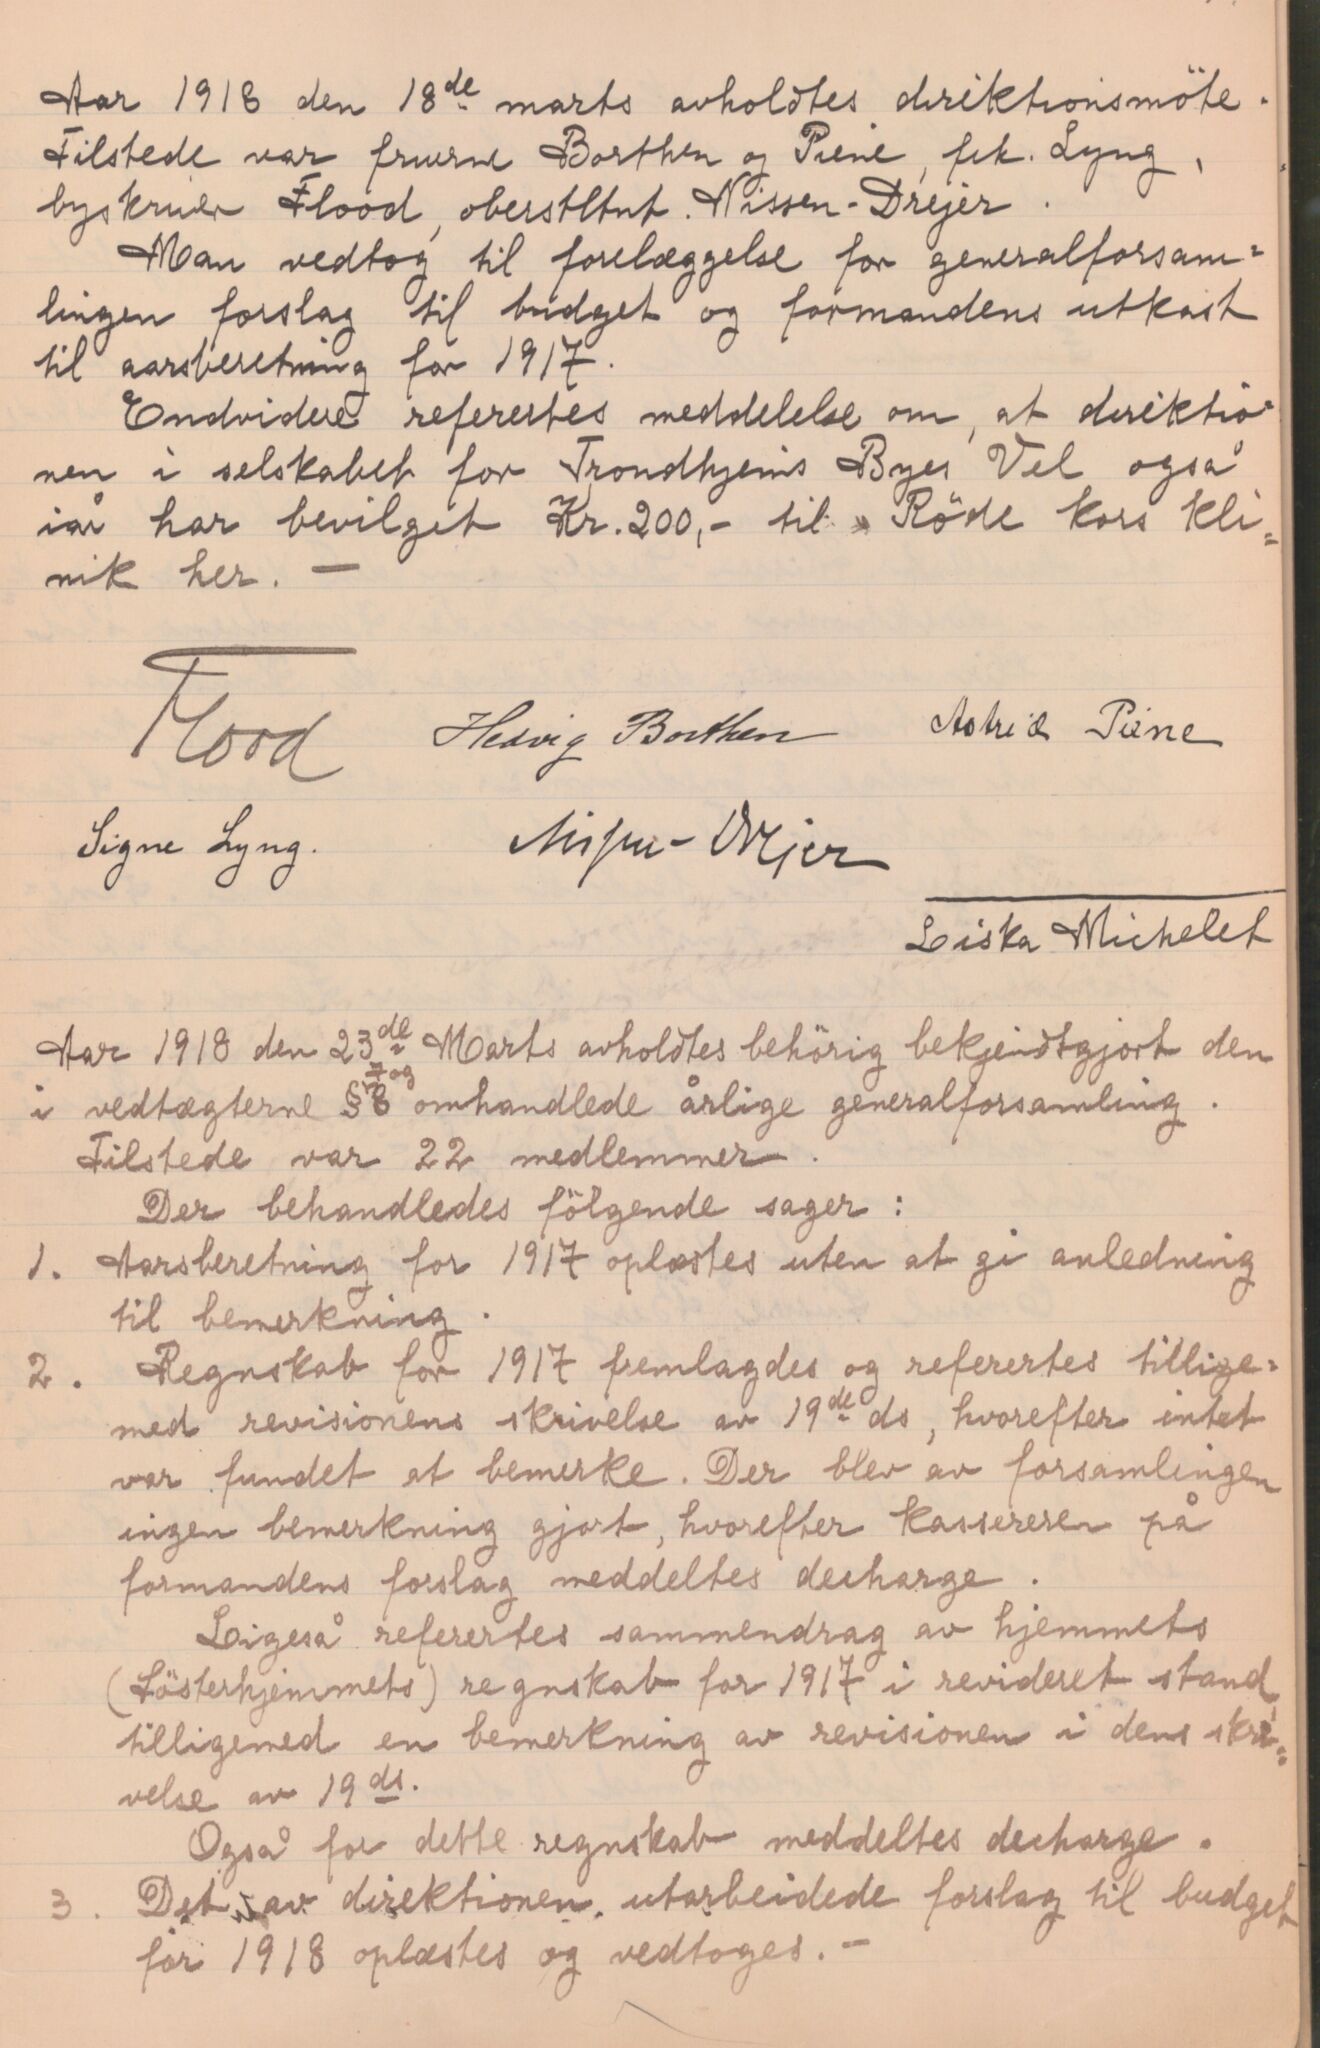 Aar 1918 den 18de marts avholdtes direktionsmöte.
Tilstede var fruerne Borthen og Piene, frk. Lyng,
byskriver Flood, oberstltnt. Nissen-Drejer.
Man vedtog til forelæggelse for generalforsam=
lingen forslag til budget og formandens utkast
til aarsberetning for 1917.
Endvidere refertes meddelelse om, at direktio=
nen i selskabet for Trondhjems Byes Vel også
iår har bevilget Kr. 200,- til Röde kors kli=
nik her. —
Flood Hedvig Borthen Astrid Piene
Signe Lyng. Nissen-Drejer
Liska Michelet
Aar 1918 den 23de Marts avholdtes behörig bekjendtgjort den
i vedtægterne § 7 og 8 omhandlede årlige generalforsamling.
Tilstede var 22 medlemmer.
Der behandledes fölgende sager:
1. Aarsberetning for 1917 oplæstes uten at gi anledning
til bemerkning.
2. Regnskab for 1917 fremlagdes og refertes tillige=
med revisionens skrivelse av 19de ds, hvorefter intet
var fundet at bemerke. Der blev av forsamlingen
ingen bemerkning gjort, hvorefter kassereren på
formandens forslag meddeltes decharge.
Ligeså refertes sammendrag av hjemmets
(Sösterhjemmets) regnskab for 1917 i revideret stand,
tilligemed en bemerkning av revisionen i dens skri=
velse av 19 ds.
Også for dette regnskab meddeltes decharge.
3. Det av direktionen utarbeidede forslag til budget
for 1918 oplæstes og vedtoges. —